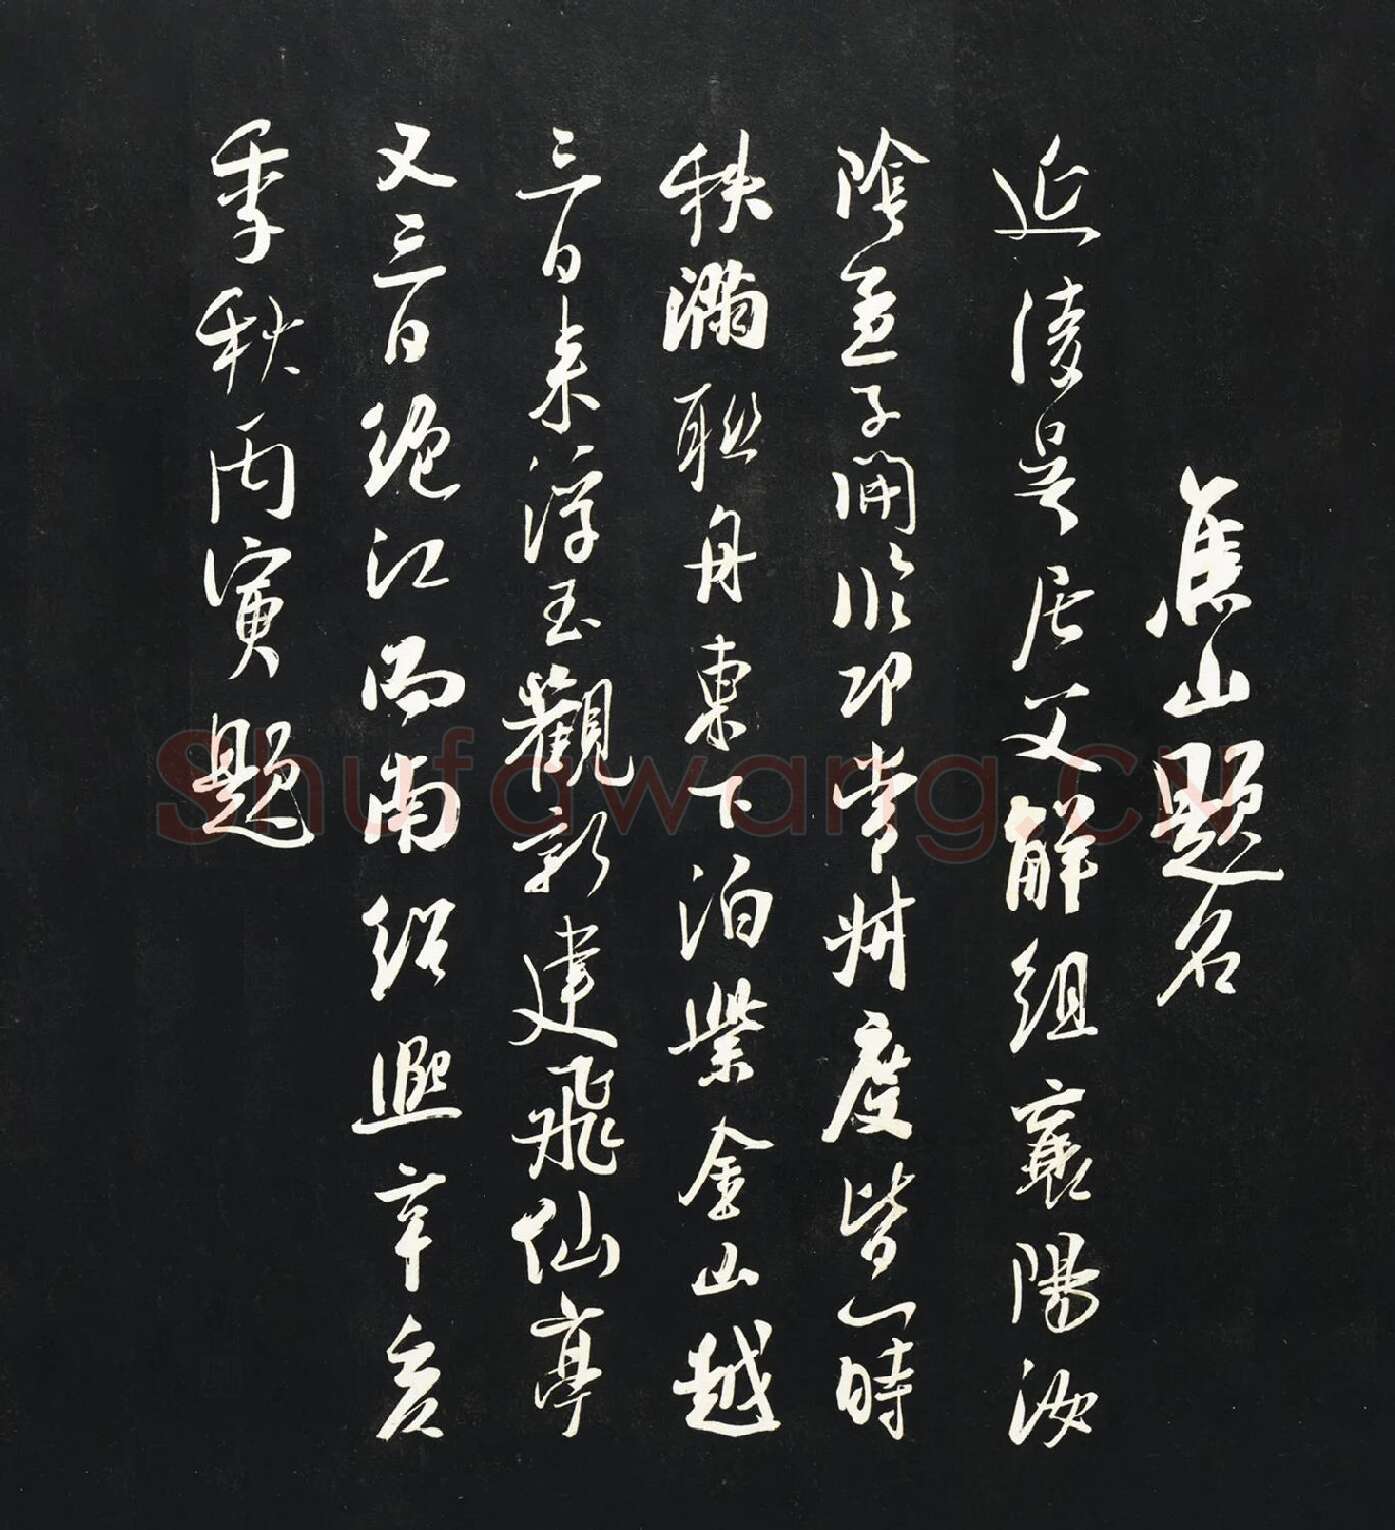 焦山題名
延陵吳居父解組襄陽汝
陰孟子開臨邛常叔度皆一時
秩滿聯舟東下泊紫金山越
三日来浮玉觀新建飛仙亭
又三日絕江而南紹熙辛亥
季秋丙寅題
shufawang.cn